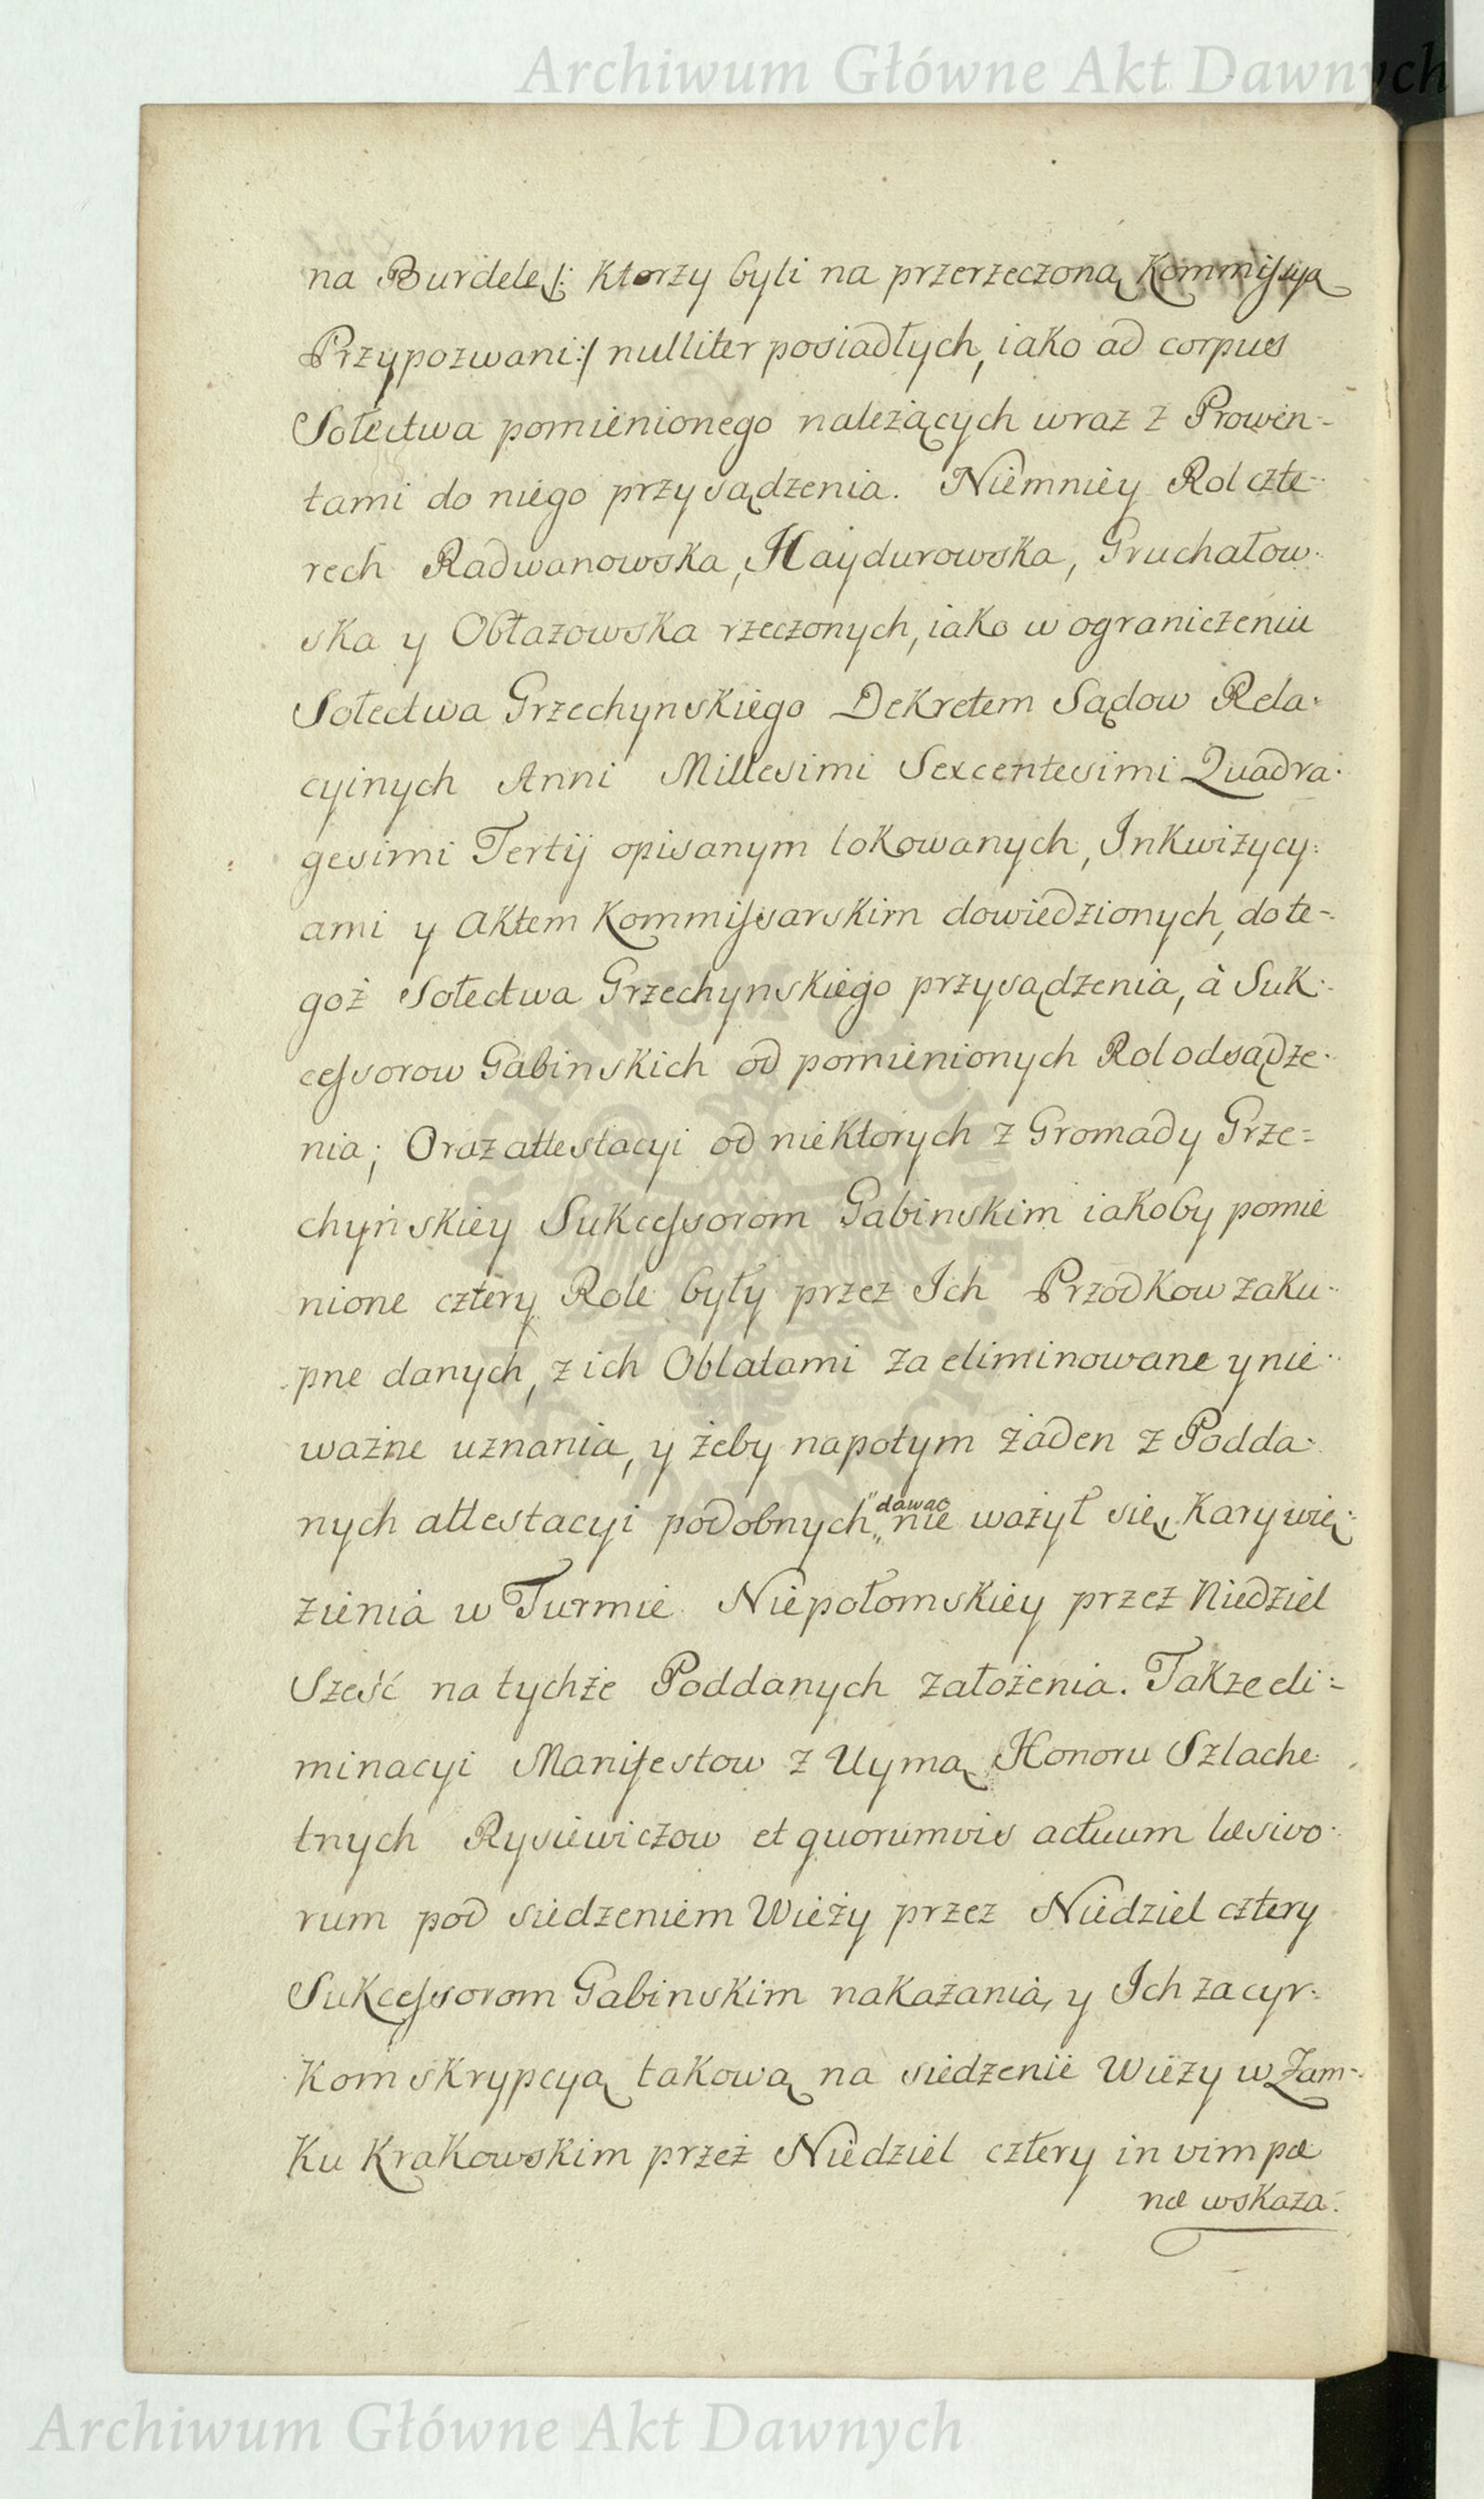 Archiwum Główne Akt Dawnych
na Burdele /: Ktorzy byli na przerzeczoną Kommissyą
Przypozwani :/ nulliter posiadłych, iako ad corpus
Sołectwa pomienionego należących wraz z Prowen-
tami do niego przysądzenia. Niemniey Rol czte-
rech Radwanowska, Haydurowska, Gruchałow-
ska y Obłazowska rzeczonych, iako w ograniczeniu
Sołectwa Grzechynskiego Dekretem Sądow Rela-
cyinych Anni Millesimi Sexcentesimi Quadra-
gesimi Tertij opisanym lokowanych, Inkwizycy-
ami y Aktem Kommissarskim dowiedzionych, do te-
goż Sołectwa Grzechynskiego przysądzenia, à Suk-
cessorow Gabinskich od pomienionych Rol odsądze-
nia; Oraz attestacyi od niektorych z Gromady Grze-
chyńskiey Sukcessorom Gabinskim iakoby pomie
nione cztery Role były przez Ich Przodkow zaku-
pne danych, z ich Oblatami za eliminowane y nie-
ważne uznania, y żeby napotym żaden z Podda-
nych attestacyi podobnych "dawać nie ważył się, Kary wię-
zienia w Turmie Niepołomskiey przez Niedziel
Sześć na tychże Poddanych założenia. Takze eli-
minacyi Manifestow z Uymą Honoru Szlache-
tnych Rysiewiczow et quorumvis actuum læsivo-
rum pod siedzeniem Wieży przez Niedziel cztery
Sukcessorom Gabinskim nakazania, y Ich za cyr-
komskrypcyą takową na siedzenie Wieży w Zam-
ku Krakowskim przez Niedziel cztery in vim pœ
næ wskaza-
Archiwum Główne Akt Dawnych